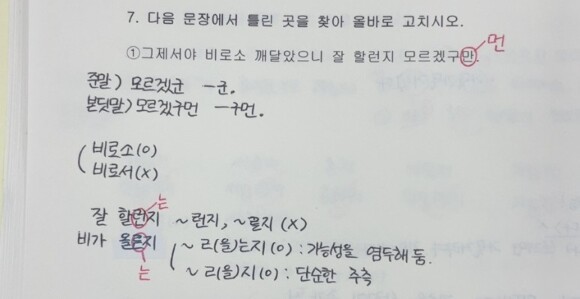 7. 다음 문장에서 틀린 곳을 찾아 올바로 고치시오.
먼
①그제서야 비로소 깨달았으니 잘 할런지 모르겠구만.
준말) 모르겠군 -군.
본딧말) 모르겠구먼 -구먼.
비로소(O)
비로서(X)
는
잘 할런지 ~런지, ~른지 (X)
비가 올른지 ~ㄹ(을)는지(O) : 가능성을 염두해 둠.
는
~ㄹ(을)지(O) : 단순한 추측